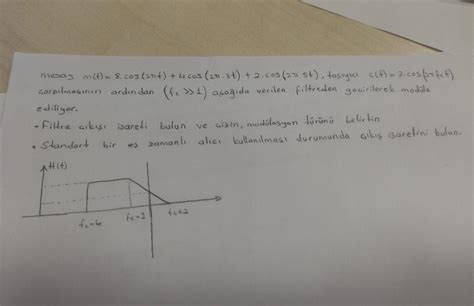 mesaj m(t)=8.cos(2πt)+4cos(2π.3t)+2.cos(2π.5t), taşıyıcı c(t)=2.cos(2πfct)
çarpılmasının ardından (fc >>1) aşağıda verilen filtreden geçirilerek modüle
ediliyor.
• Filtre çıkışı işareti bulun ve çizin, modülasyon türünü belirtin
• Standart bir eş zamanlı alıcı kullanılması durumunda çıkış işaretini bulun.
H(t)
fc-6
fc-2
fc+2